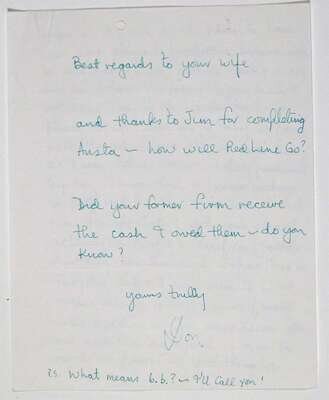 Best regards to your wife
and thanks to Jim for completing
Austa – how will Red Line Go?
Did your former firm receive
the cash I owed them – do you
know?
yours trully
Don
P.S. What means b.b.? – I'll call you!